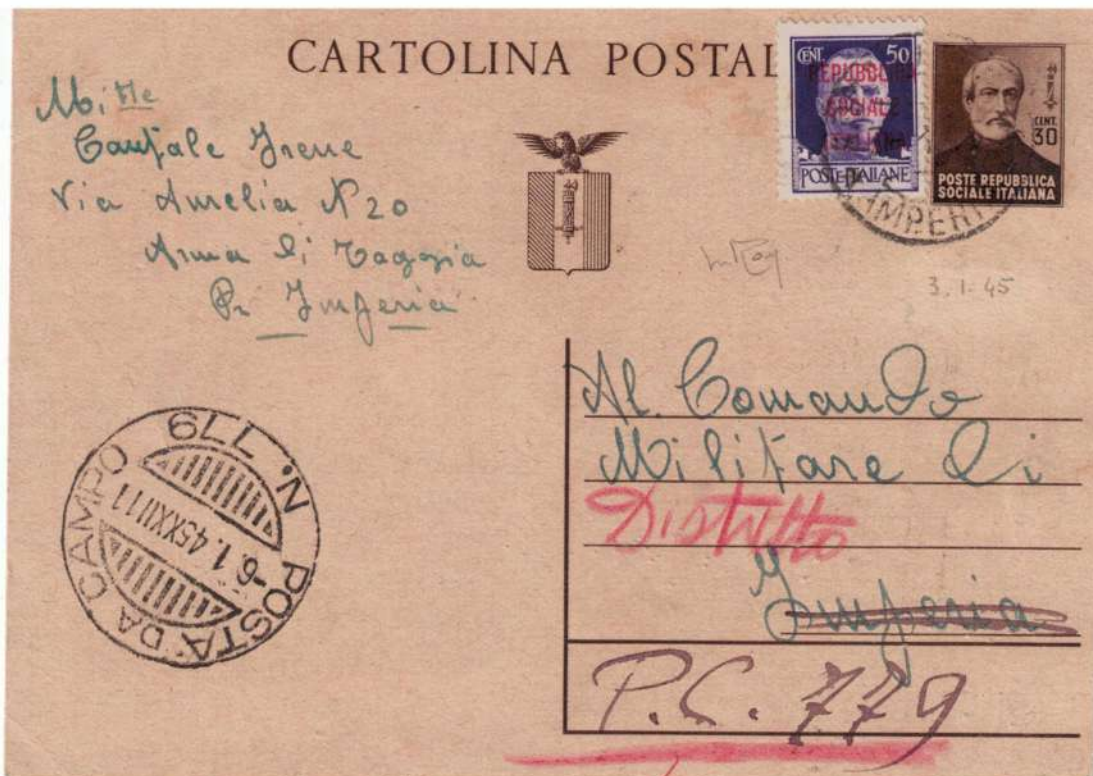 CARTOLINA POSTAL
Mitte
Canfale Irene
Via Aurelia N 20
Arma di Taggia
Pr Imperia
CENT. 50
REPUBBLICA
SOCIALE
POSTE ITALIANE
CENT.
30
POSTE REPUBBLICA
SOCIALE ITALIANA
IMPERI
3.1.45
Al Comando
Militare di
Distretto
Imperia
P.C. 779
POSTA DA CAMPO N. 779
-6.1.45XXIII 11